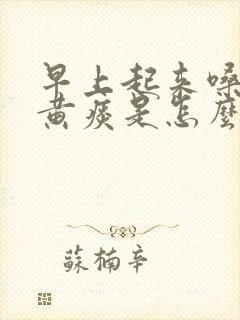 早上起来嗓
黄痰是怎麽
蘇楠辛